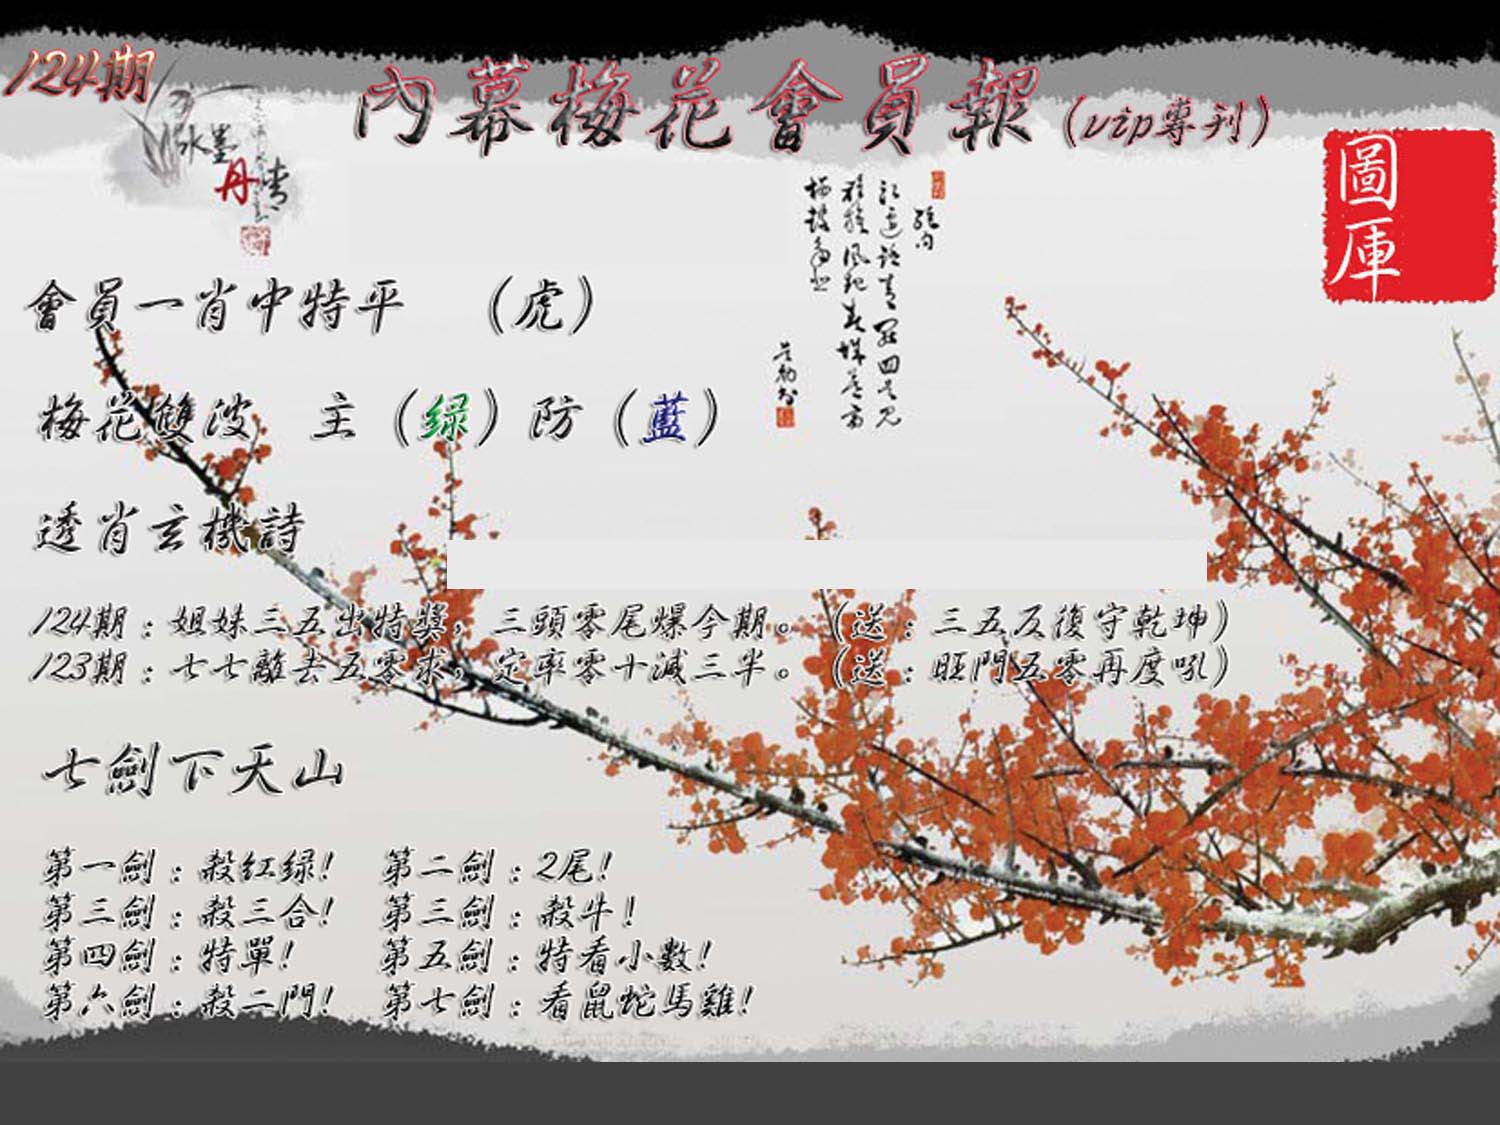 124期
內幕梅花會員報(vip專刊)
水墨
丹青
圖庫
會員一肖中特平 (虎)
梅花雙波 主(绿)防(藍)
透肖玄機詩
124期:姐妹三五出特獎,三頭零尾爆今期。(送:三五反復守乾坤)
123期:七七離去五零求,定率零十減三半。(送:旺門五零再度吼)
七劍下天山
第一劍:殺红绿! 第二劍:2尾!
第三劍:殺三合! 第三劍:殺牛!
第四劍:特單! 第五劍:特看小數!
第六劍:殺二門! 第七劍:看鼠蛇馬雞!